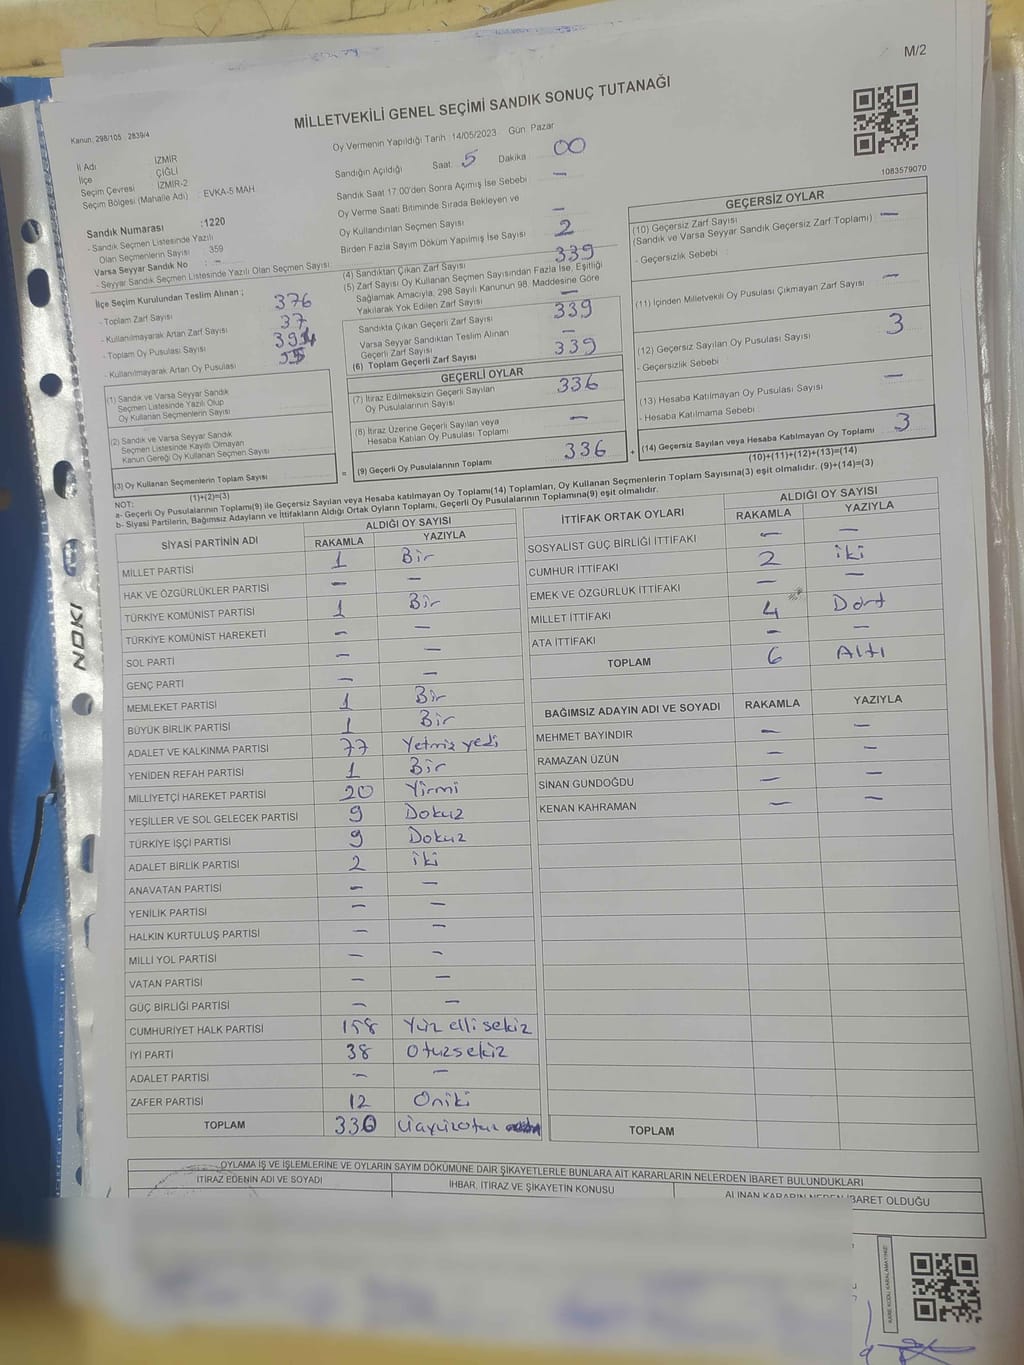 M/2
MİLLETVEKİLİ GENEL SEÇİMİ SANDIK SONUÇ TUTANAĞI
Kanun: 298/105 2839/4
İl Adı İZMİR
İlçe ÇİĞLİ
Seçim Çevresi İZMİR-2
Seçim Bölgesi (Mahalle Adı) : EVKA-5 MAH.
Sandık Numarası :1220
- Sandık Seçmen Listesinde Yazılı
Olan Seçmenlerin Sayısı : 359
Varsa Seyyar Sandık No : -
- Seyyar Sandık Seçmen Listesinde Yazılı Olan Seçmen Sayısı :
İlçe Seçim Kurulundan Teslim Alınan ;
- Toplam Zarf Sayısı 376
- Kullanılmayarak Artan Zarf Sayısı 37
- Toplam Oy Pusulası Sayısı
- Kullanılmayarak Artan Oy Pusulası
(1) Sandık ve Varsa Seyyar Sandık
Seçmen Listesinde Yazılı Olup
Oy Kullanan Seçmenlerin Sayısı
(2) Sandık ve Varsa Seyyar Sandık
Seçmen Listesinde Kayıtlı Olmayan
Kanun Gereği Oy Kullanan Seçmen Sayısı
(3) Oy Kullanan Seçmenlerin Toplam Sayısı
(1)+(2)=(3)
Oy Vermenin Yapıldığı Tarih : 14/05/2023 Gün: Pazar
Sandığın Açıldığı Saat: 5 Dakika 00
Sandık Saat 17:00'den Sonra Açılmış İse Sebebi —
Oy Verme Saati Bitiminde Sırada Bekleyen ve
Oy Kullandırılan Seçmen Sayısı —
Birden Fazla Sayım Döküm Yapılmış İse Sayısı 2
(4) Sandıktan Çıkan Zarf Sayısı 339
(5) Zarf Sayısı Oy Kullanan Seçmen Sayısından Fazla İse, Eşitliği
Sağlamak Amacıyla, 298 Sayılı Kanunun 98. Maddesine Göre
Yakılarak Yok Edilen Zarf Sayısı —
Sandıkta Çıkan Geçerli Zarf Sayısı 339
Varsa Seyyar Sandıktan Teslim Alınan
Geçerli Zarf Sayısı —
(6) Toplam Geçerli Zarf Sayısı 339
GEÇERLİ OYLAR
(7) İtiraz Edilmeksizin Geçerli Sayılan
Oy Pusulalarının Sayısı 336
(8) İtiraz Üzerine Geçerli Sayılan veya
Hesaba Katılan Oy Pusulası Toplamı —
= (9) Geçerli Oy Pusulalarının Toplamı 336 +
1083579070
GEÇERSİZ OYLAR
(10) Geçersiz Zarf Sayısı
(Sandık ve Varsa Seyyar Sandık Geçersiz Zarf Toplamı) —
- Geçersizlik Sebebi :
(11) İçinden Milletvekili Oy Pusulası Çıkmayan Zarf Sayısı —
(12) Geçersiz Sayılan Oy Pusulası Sayısı 3
- Geçersizlik Sebebi
(13) Hesaba Katılmayan Oy Pusulası Sayısı —
- Hesaba Katılmama Sebebi
(14) Geçersiz Sayılan veya Hesaba Katılmayan Oy Toplamı 3
(10)+(11)+(12)+(13)=(14)
NOT:
a- Geçerli Oy Pusulalarının Toplamı(9) ile Geçersiz Sayılan veya Hesaba katılmayan Oy Toplamı(14) Toplamları, Oy Kullanan Seçmenlerin Toplam Sayısına(3) eşit olmalıdır. (9)+(14)=(3)
b- Siyasi Partilerin, Bağımsız Adayların ve İttifakların Aldığı Ortak Oyların Toplamı, Geçerli Oy Pusulalarının Toplamına(9) eşit olmalıdır.
SİYASİ PARTİNİN ADI ALDIĞI OY SAYISI
RAKAMLA YAZIYLA
MİLLET PARTİSİ 1 Bir
HAK VE ÖZGÜRLÜKLER PARTİSİ — —
TÜRKİYE KOMÜNİST PARTİSİ 1 Bir
TÜRKİYE KOMÜNİST HAREKETİ — —
SOL PARTİ — —
GENÇ PARTİ — —
MEMLEKET PARTİSİ 1 Bir
BÜYÜK BİRLİK PARTİSİ 1 Bir
ADALET VE KALKINMA PARTİSİ 77 Yetmiz yedi
YENİDEN REFAH PARTİSİ 1 Bir
MİLLİYETÇİ HAREKET PARTİSİ 20 Yirmi
YEŞİLLER VE SOL GELECEK PARTİSİ 9 Dokuz
TÜRKİYE İŞÇİ PARTİSİ 9 Dokuz
ADALET BİRLİK PARTİSİ 2 iki
ANAVATAN PARTİSİ — —
YENİLİK PARTİSİ — —
HALKIN KURTULUŞ PARTİSİ — —
MİLLİ YOL PARTİSİ — —
VATAN PARTİSİ — —
GÜÇ BİRLİĞİ PARTİSİ — —
CUMHURİYET HALK PARTİSİ 158 Yüz elli sekiz
İYİ PARTİ 38 Otuzsekiz
ADALET PARTİSİ — —
ZAFER PARTİSİ 12 Oniki
TOPLAM 330
İTTİFAK ORTAK OYLARI ALDIĞI OY SAYISI
RAKAMLA YAZIYLA
SOSYALİST GÜÇ BİRLİĞİ İTTİFAKI — —
CUMHUR İTTİFAKI 2 iki
EMEK VE ÖZGÜRLÜK İTTİFAKI — —
MİLLET İTTİFAKI 4 Dört
ATA İTTİFAKI — —
TOPLAM 6 Altı
BAĞIMSIZ ADAYIN ADI VE SOYADI RAKAMLA YAZIYLA
MEHMET BAYINDIR — —
RAMAZAN UZÜN — —
SİNAN GÜNDOĞDU — —
KENAN KAHRAMAN — —
TOPLAM
OYLAMA İŞ VE İŞLEMLERİNE VE OYLARIN SAYIM DÖKÜMÜNE DAİR ŞİKAYETLERLE BUNLARA AİT KARARLARIN NELERDEN İBARET BULUNDUKLARI
İTİRAZ EDENİN ADI VE SOYADI İHBAR, İTİRAZ VE ŞİKAYETİN KONUSU ALINAN KARARIN NEDEN İBARET OLDUĞU
KARE KODU KARALAMAYINIZ!
NOKI